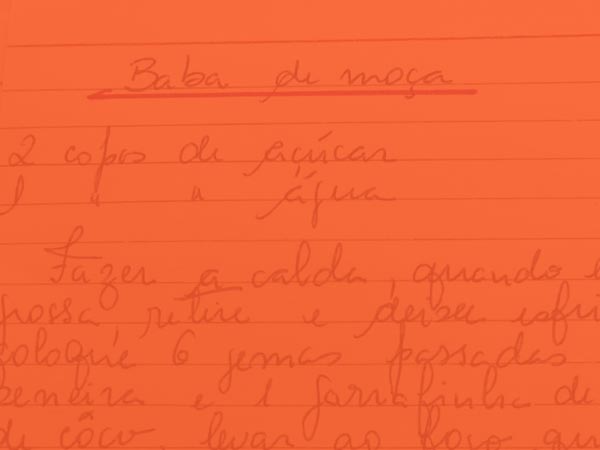 Baba de moça
2 copos de açúcar
1 " " água
Fazer a calda, quando
grossa, retire e deixe esfri
coloque 6 gemas passadas
peneira e 1 garrafinha de
de côco, levar ao fogo